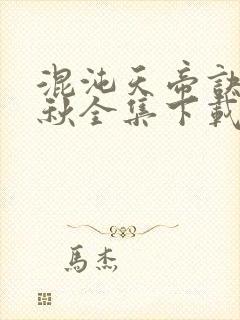 混沌天帝訣
秋全集下載
馬杰